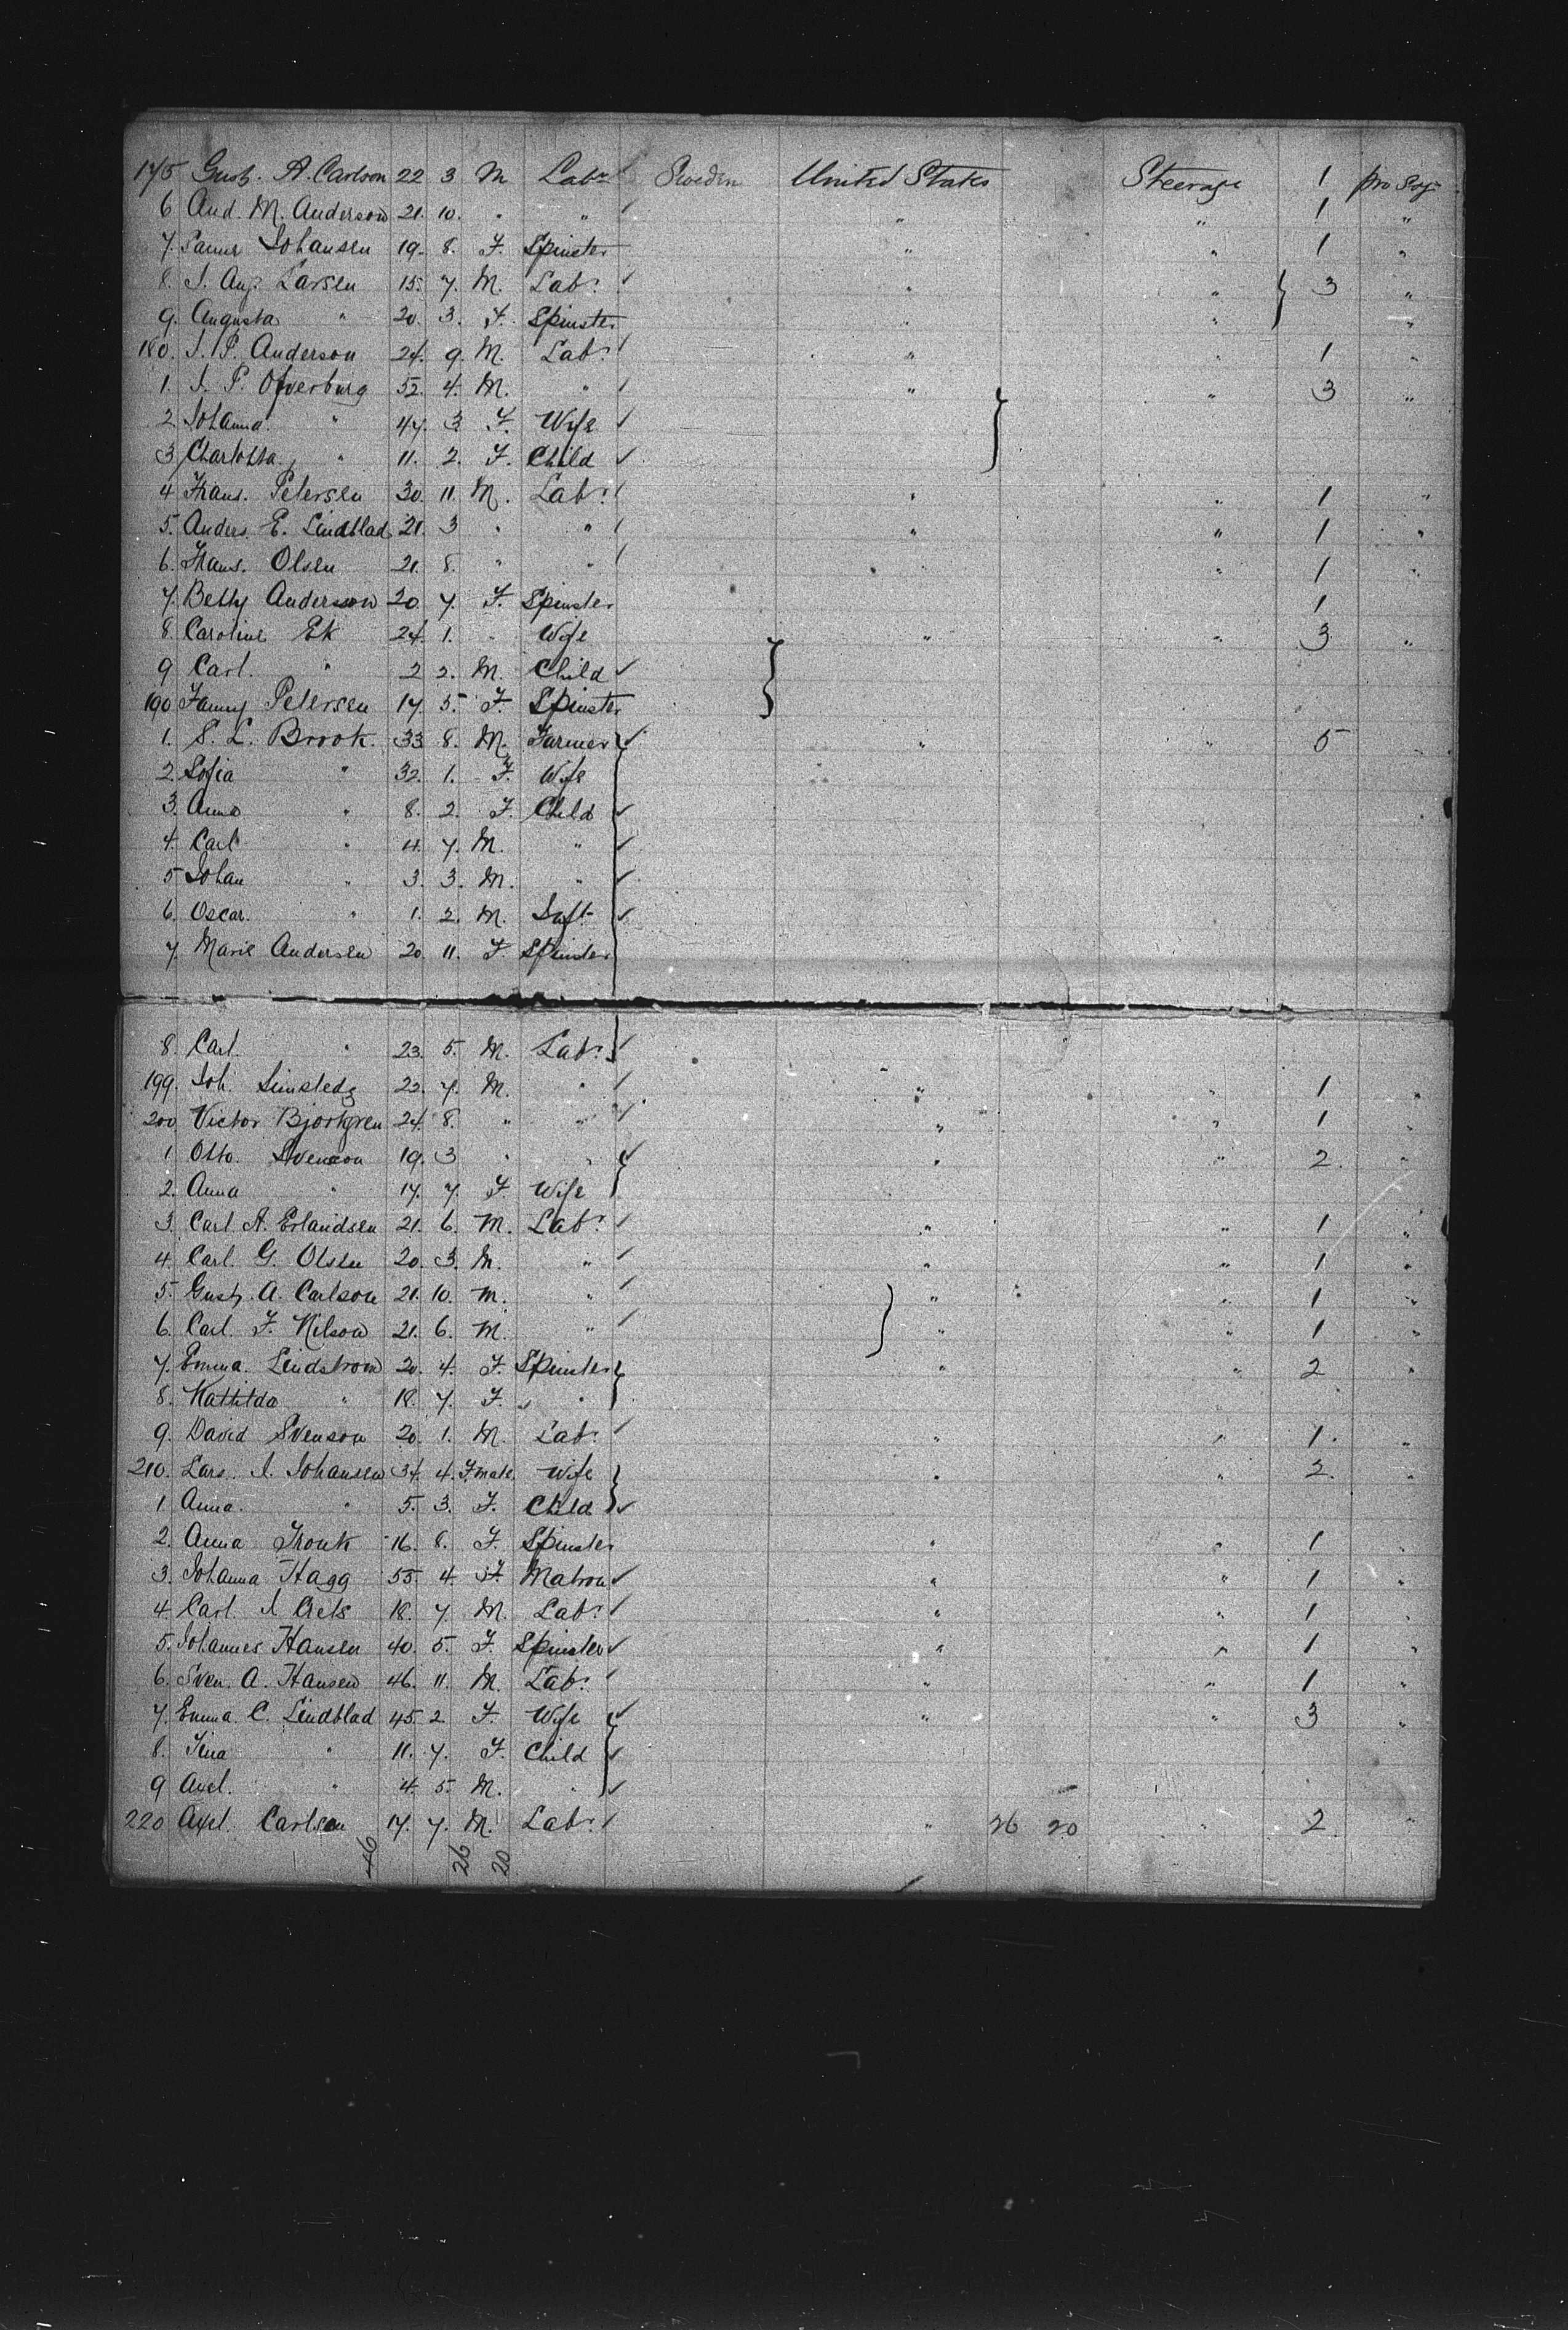 175 Gust. A. Carlson 22 3 M Labr Sweden United States Steerage 1 pro Sog
6 And. M. Anderson 21. 10. " " " " 1 "
7. Johansen 19. 8. F. Spinster " " 1 "
8. J. Aug. Larsen 15. 7. M. Labr " " 3 "
9. Augusta " 20. 3. F. Spinster " " "
180. J. P. Anderson 24. 9. M. Labr " " 1 "
1. J. P. Ofverburg 52. 4. M. " " " 3 "
2 Johanna " 47. 3 F. Wife
3 Charlotta " 11. 2. F. Child
4 Frans. Petersen 30. 11. M. Labr " " 1 "
5. Anders. E. Lindblad 21. 3 " " " " 1 "
6. Frans. Olsen 21. 8. " " " " 1 "
7. Betty Anderson 20. 7. F. Spinster 1
8. Caroline Ek 24. 1. " Wife " " 3 "
9 Carl. " 2 2. M. Child
190 Fanny Petersen 17. 5. F. Spinster
1. S. L. Brook. 33 8. M. Farmer " " 5 "
2. Sofia " 32. 1. F. Wife
3. Anna " 8. 2. F. Child
4. Carl " 4. 7. M. "
5 Johan " 3. 3. M. "
6. Oscar. " 1. 2. M. Inft
7. Marie Andersen 20. 11. F. Spinster
8. Carl. " 23. 5. M. Labr
199. Joh. 22. 7. M. " " " 1 "
200 Victor Bjorkgren 24. 8. " " " " 1 "
1 Otto. Svenson 19. 3 " " " " 2. "
2. Anna " 17. 7. F. Wife
3. Carl A. Erlandsen 21. 6. M. Labr " " 1 "
4. Carl. G. Olsen 20. 3. M. " " " 1 "
5. Gust. A. Carlson 21. 10. M. " " " 1 "
6. Carl. F. Nelson 21. 6. M. " " " 1 "
7. Emma. Lindstrom 20. 4. F. Spinster " " 2 "
8. Mathilda " 18. 7. F. "
9. David Svenson 20. 1. M. Labr " " 1. "
210. Lars. J. Johansen 34. 4. Fmale Wife " " 2. "
1. Anna. " 5. 3. F. Child
2. Anna 16. 8. F. Spinster " " 1 "
3. Johanna Hagg 55. 4. F. Matron " " 1 "
4. Carl J. 18. 7. M. Labr " " 1 "
5. Johannes Hansen 40. 5. F. Spinster " " 1 "
6. Sven. A. Hansen 46. 11. M. Labr " " 1 "
7. Emma. C. Lindblad 45. 2 F. Wife " " 3 "
8. Tina " 11. 7. F. Child
9 Axel. " 4. 5. M. "
220 Axel. Carlsen 17. 7. M. Labr " 26 20 " 2. "
46 26 20